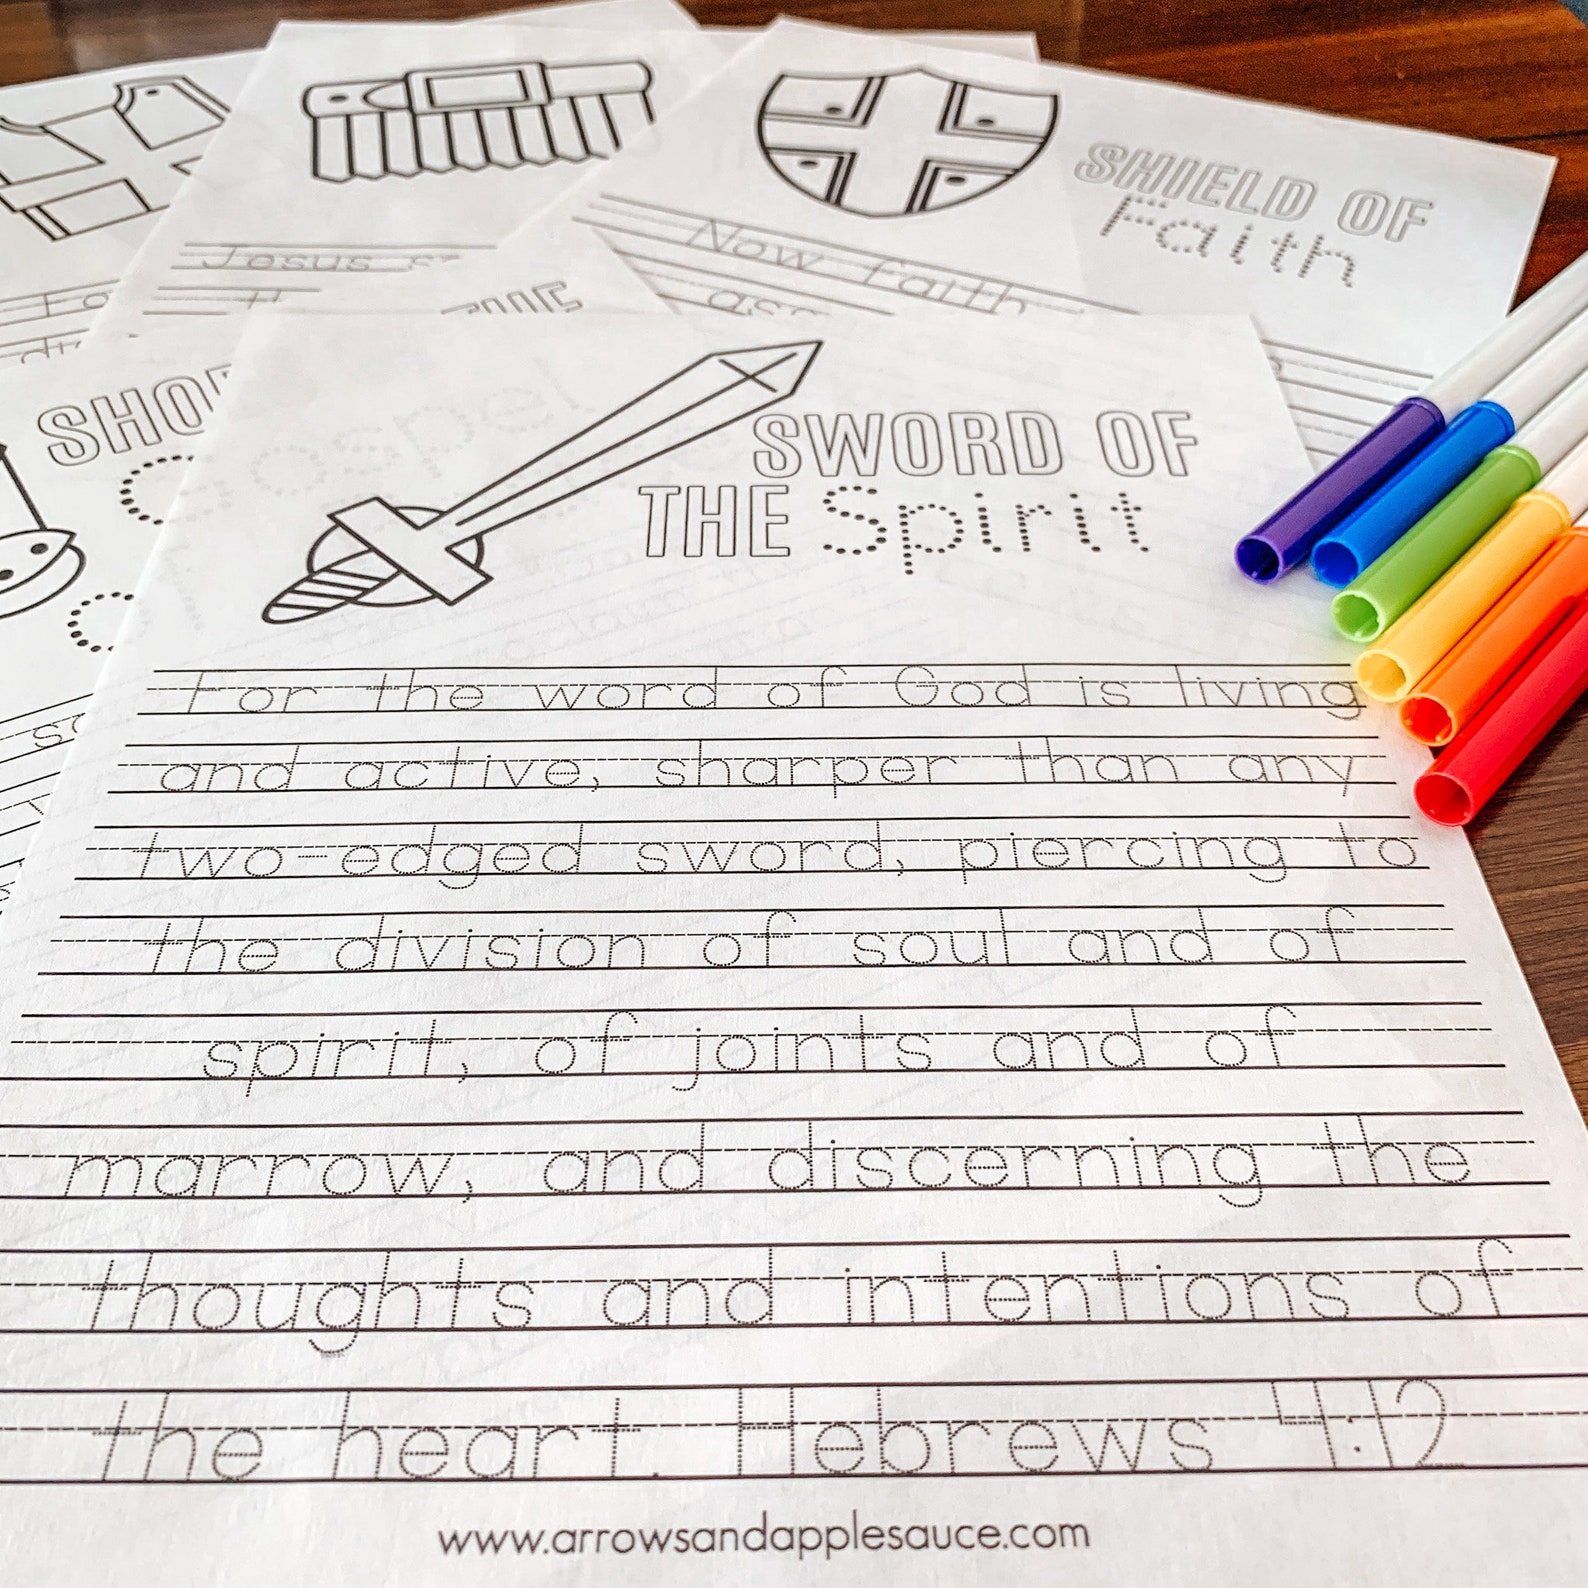 SHIELD OF
Faith
Now faith
Jesus
SWORD OF
THE Spirit
For the word of God is living
and active, sharper than any
two-edged sword, piercing to
the division of soul and of
spirit, of joints and of
marrow, and discerning the
thoughts and intentions of
the heart. Hebrews 4:12
www.arrowsandapplesauce.com